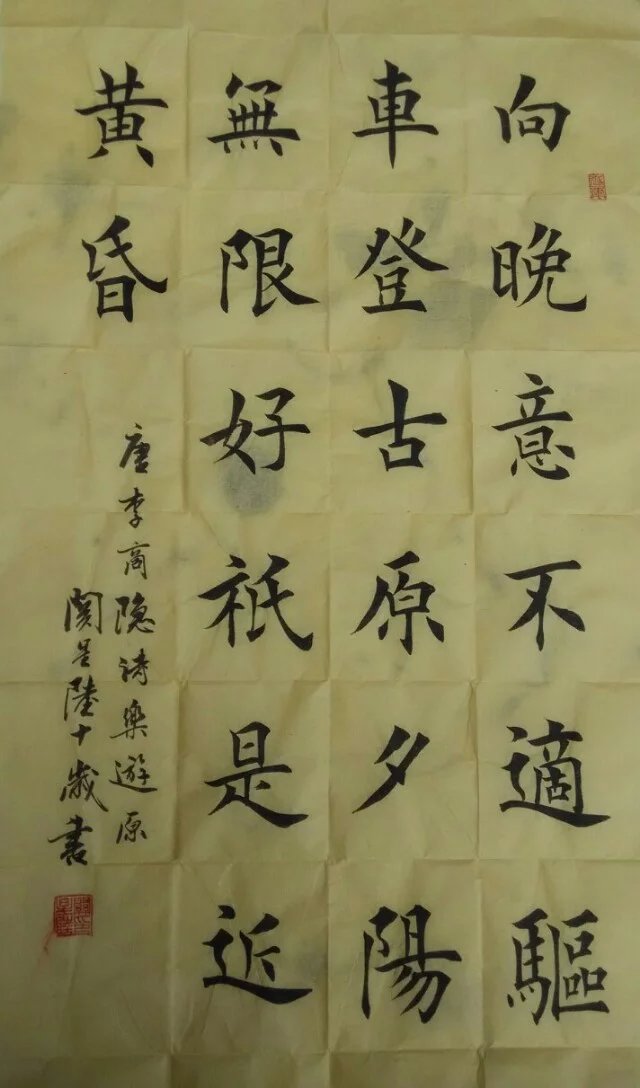 向晚意不適驅
車登古原夕陽
無限好祇是近
黄昏
唐李商隐詩樂遊原
陸十歲書